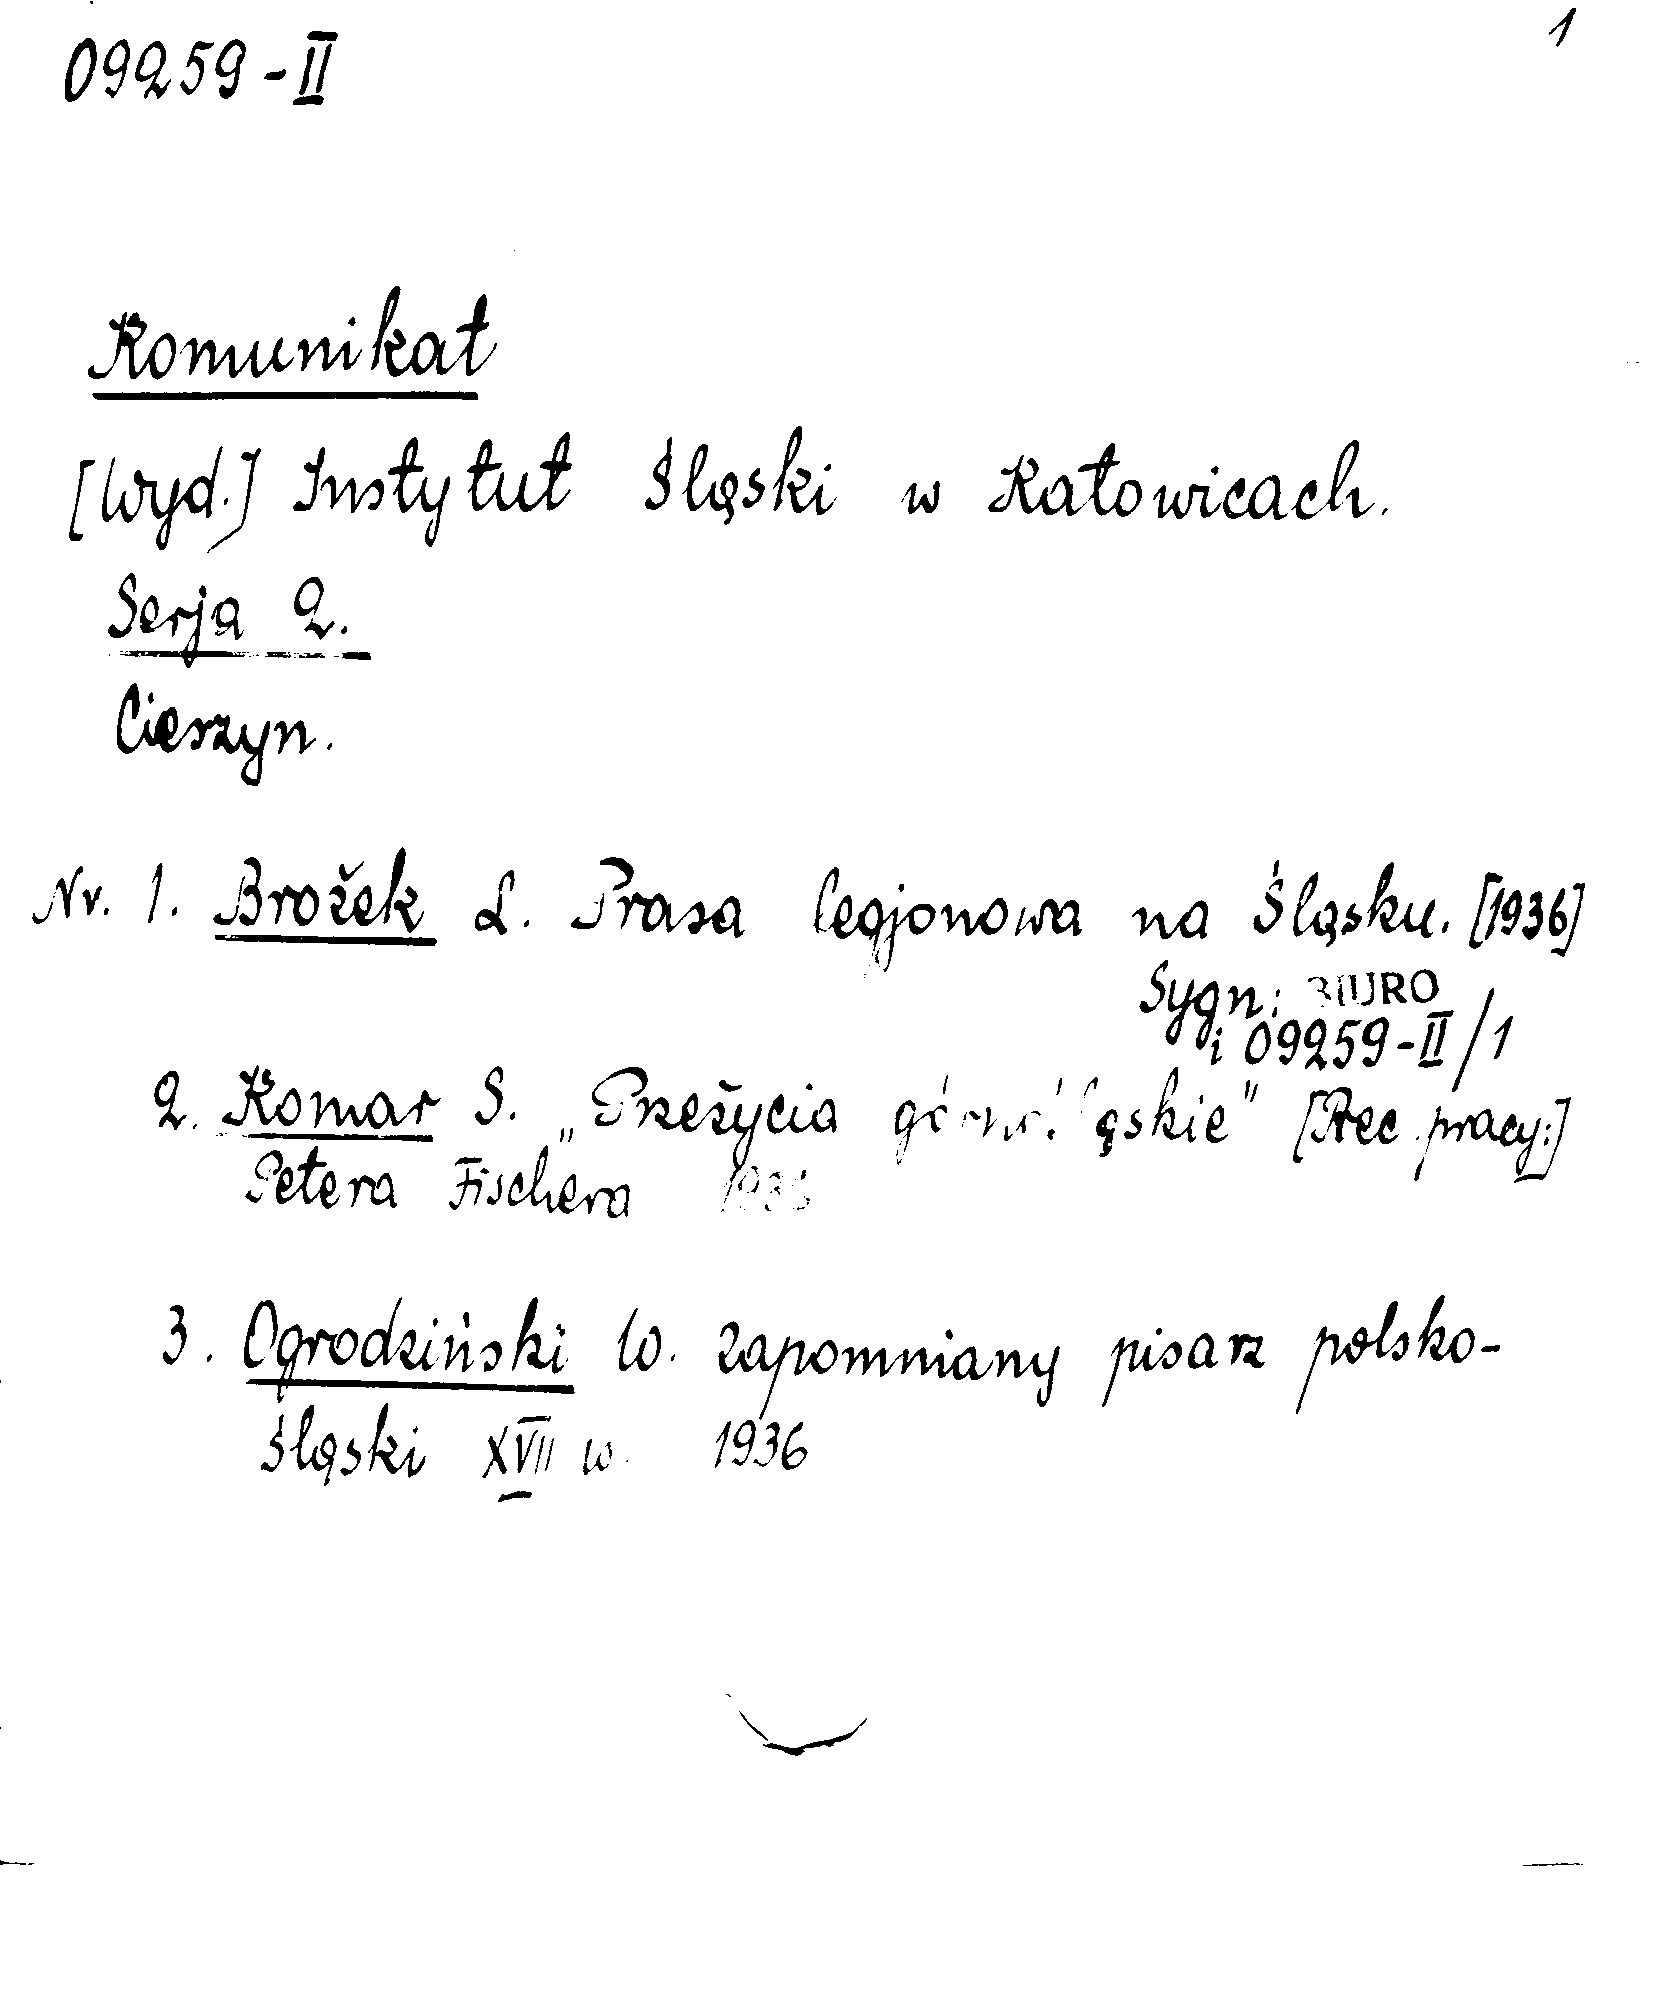 09259-II
1
Komunikat
[Wyd.] Instytut Śląski w Katowicach.
Serja 2.
Cieszyn.
Nr. 1. Brożek L. Prasa legjonowa na Śląsku. [1936]
Sygn: BIURO
i 09259-II/1
2. Komar S. „Przeżycia górnośląskie" [Rec. pracy:]
Petera Fischera 1936
3. Ogrodziński W. Zapomniany pisarz polsko-
śląski XVII w. 1936